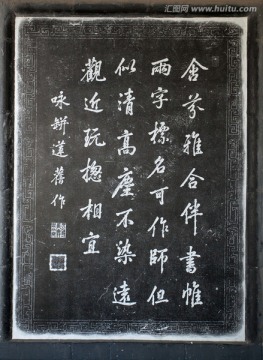 含芬雅合伴書帷
兩字標名可作師但
似清高塵不染遠
觀近玩摠相宜
咏缾蓮舊作
汇图网
www.huitu.com